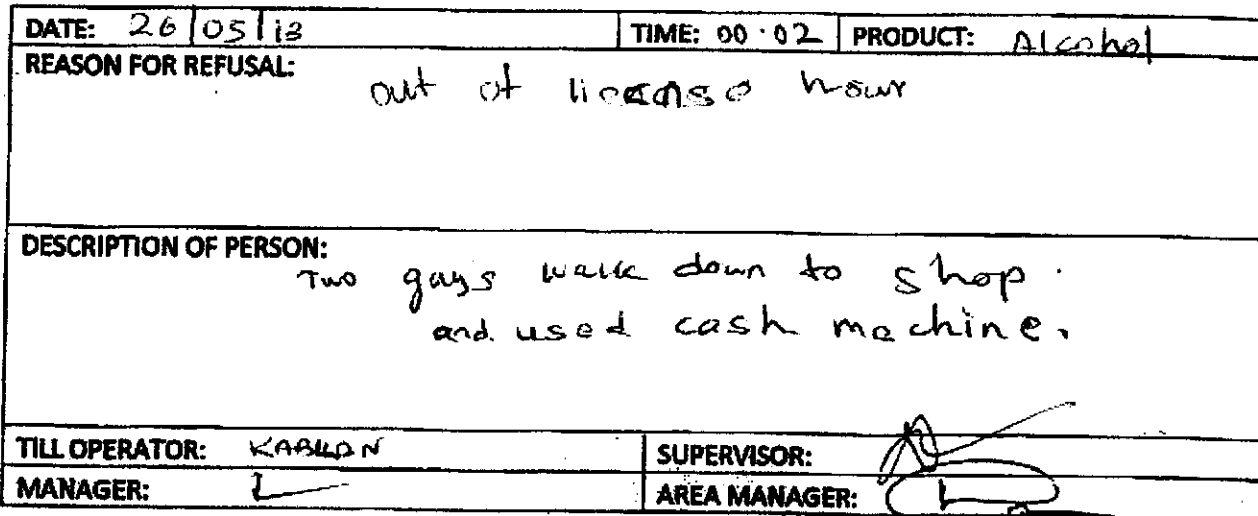 DATE: 26/05/13 TIME: 00·02 PRODUCT: Alcohol
REASON FOR REFUSAL:
out of license hour
DESCRIPTION OF PERSON:
Two guys walk down to shop.
and used cash machine.
TILL OPERATOR: SUPERVISOR:
MANAGER: AREA MANAGER: